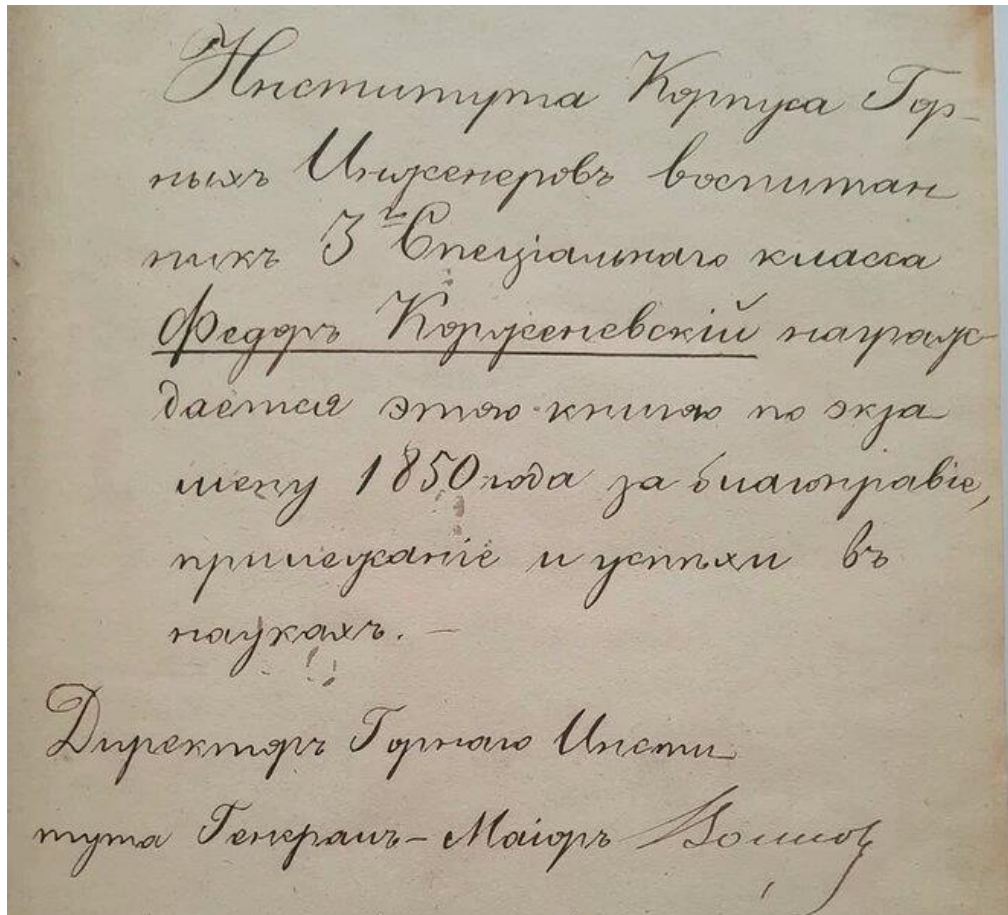 Института Корпуса Гор-
ныхъ Инженеровъ воспитан
никъ 3го Спеціальнаго класса
Федоръ Корженевскій награж
дается этою книгою по экза
мену 1850 года за благонравіе,
прилежаніе и успѣхи въ
наукахъ. —
Директоръ Горнаго Инсти
тута Генералъ-Маіоръ